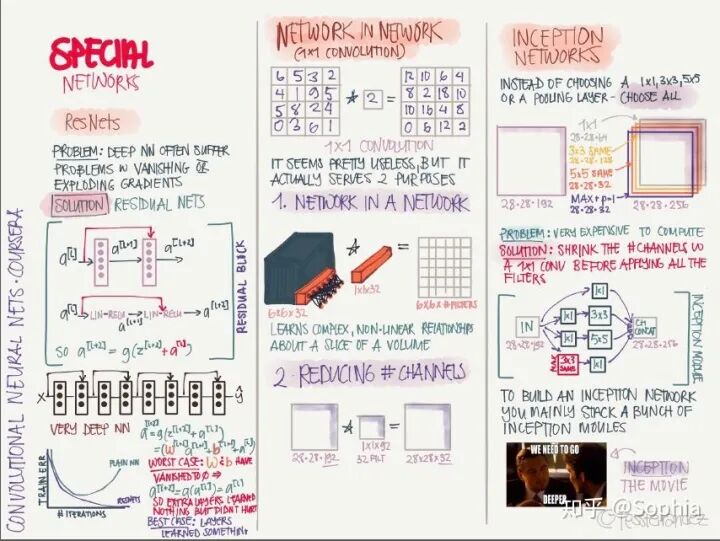 CONVOLUTIONAL NEURAL NETS · COURSERA
SPECIAL
NETWORKS
ResNets
PROBLEM: DEEP NN OFTEN SUFFER
PROBLEMS W VANISHING OR
EXPLODING GRADIENTS
SOLUTION RESIDUAL NETS
a[l] a[l+1] a[l+2]
a[l] LIN-RELU LIN-RELU a[l+2]
a[l+1]
SO a[l+2] = g(z[l+2] + a[l])
RESIDUAL BLOCK
X ŷ
VERY DEEP NN
TRAIN ERR
PLAIN NN
RESNETS
# ITERATIONS
WORST CASE: W & b HAVE
VANISHED TO 0 ⇒
SO EXTRA LAYERS LEARNED
NOTHING BUT DIDNT HURT
BEST CASE: LAYERS
LEARNED SOMETHING
NETWORK IN NETWORK
(1x1 CONVOLUTION)
6 5 3 2
4 1 9 5
5 8 2 4
0 3 6 1
* 2 =
12 10 6 4
8 2 18 10
10 16 4 8
0 6 12 2
1x1 CONVOLUTION
IT SEEMS PRETTY USELESS, BUT IT
ACTUALLY SERVES 2 PURPOSES
1. NETWORK IN A NETWORK
* =
6x6x32
1x1x32
6x6x#FILTERS
LEARNS COMPLEX, NON-LINEAR RELATIONSHIPS
ABOUT A SLICE OF A VOLUME
2. REDUCING # CHANNELS
* =
28·28·192
1x1x192
32 FILT
28x28x32
INCEPTION
NETWORKS
INSTEAD OF CHOOSING A 1x1, 3x3, 5x5
OR A POOLING LAYER - CHOOSE ALL
1x1
28·28·64
3x3 SAME
28·28·128
5x5 SAME
28·28·32
MAX+P=1
28·28·32
28·28·192
28·28·256
PROBLEM: VERY EXPENSIVE TO COMPUTE
SOLUTION: SHRINK THE #CHANNELS W
A 1x1 CONV BEFORE APPLYING ALL THE
FILTERS
IN
28·28·192
1x1
1x1 3x3
1x1 5x5
3x3 SAME 1x1
CH CONCAT
28·28·256
INCEPTION MODULE
TO BUILD AN INCEPTION NETWORK
YOU MAINLY STACK A BUNCH OF
INCEPTION MOULES
WE NEED TO GO
DEEPER
INCEPTION
THE MOVIE
知乎 @Sophia